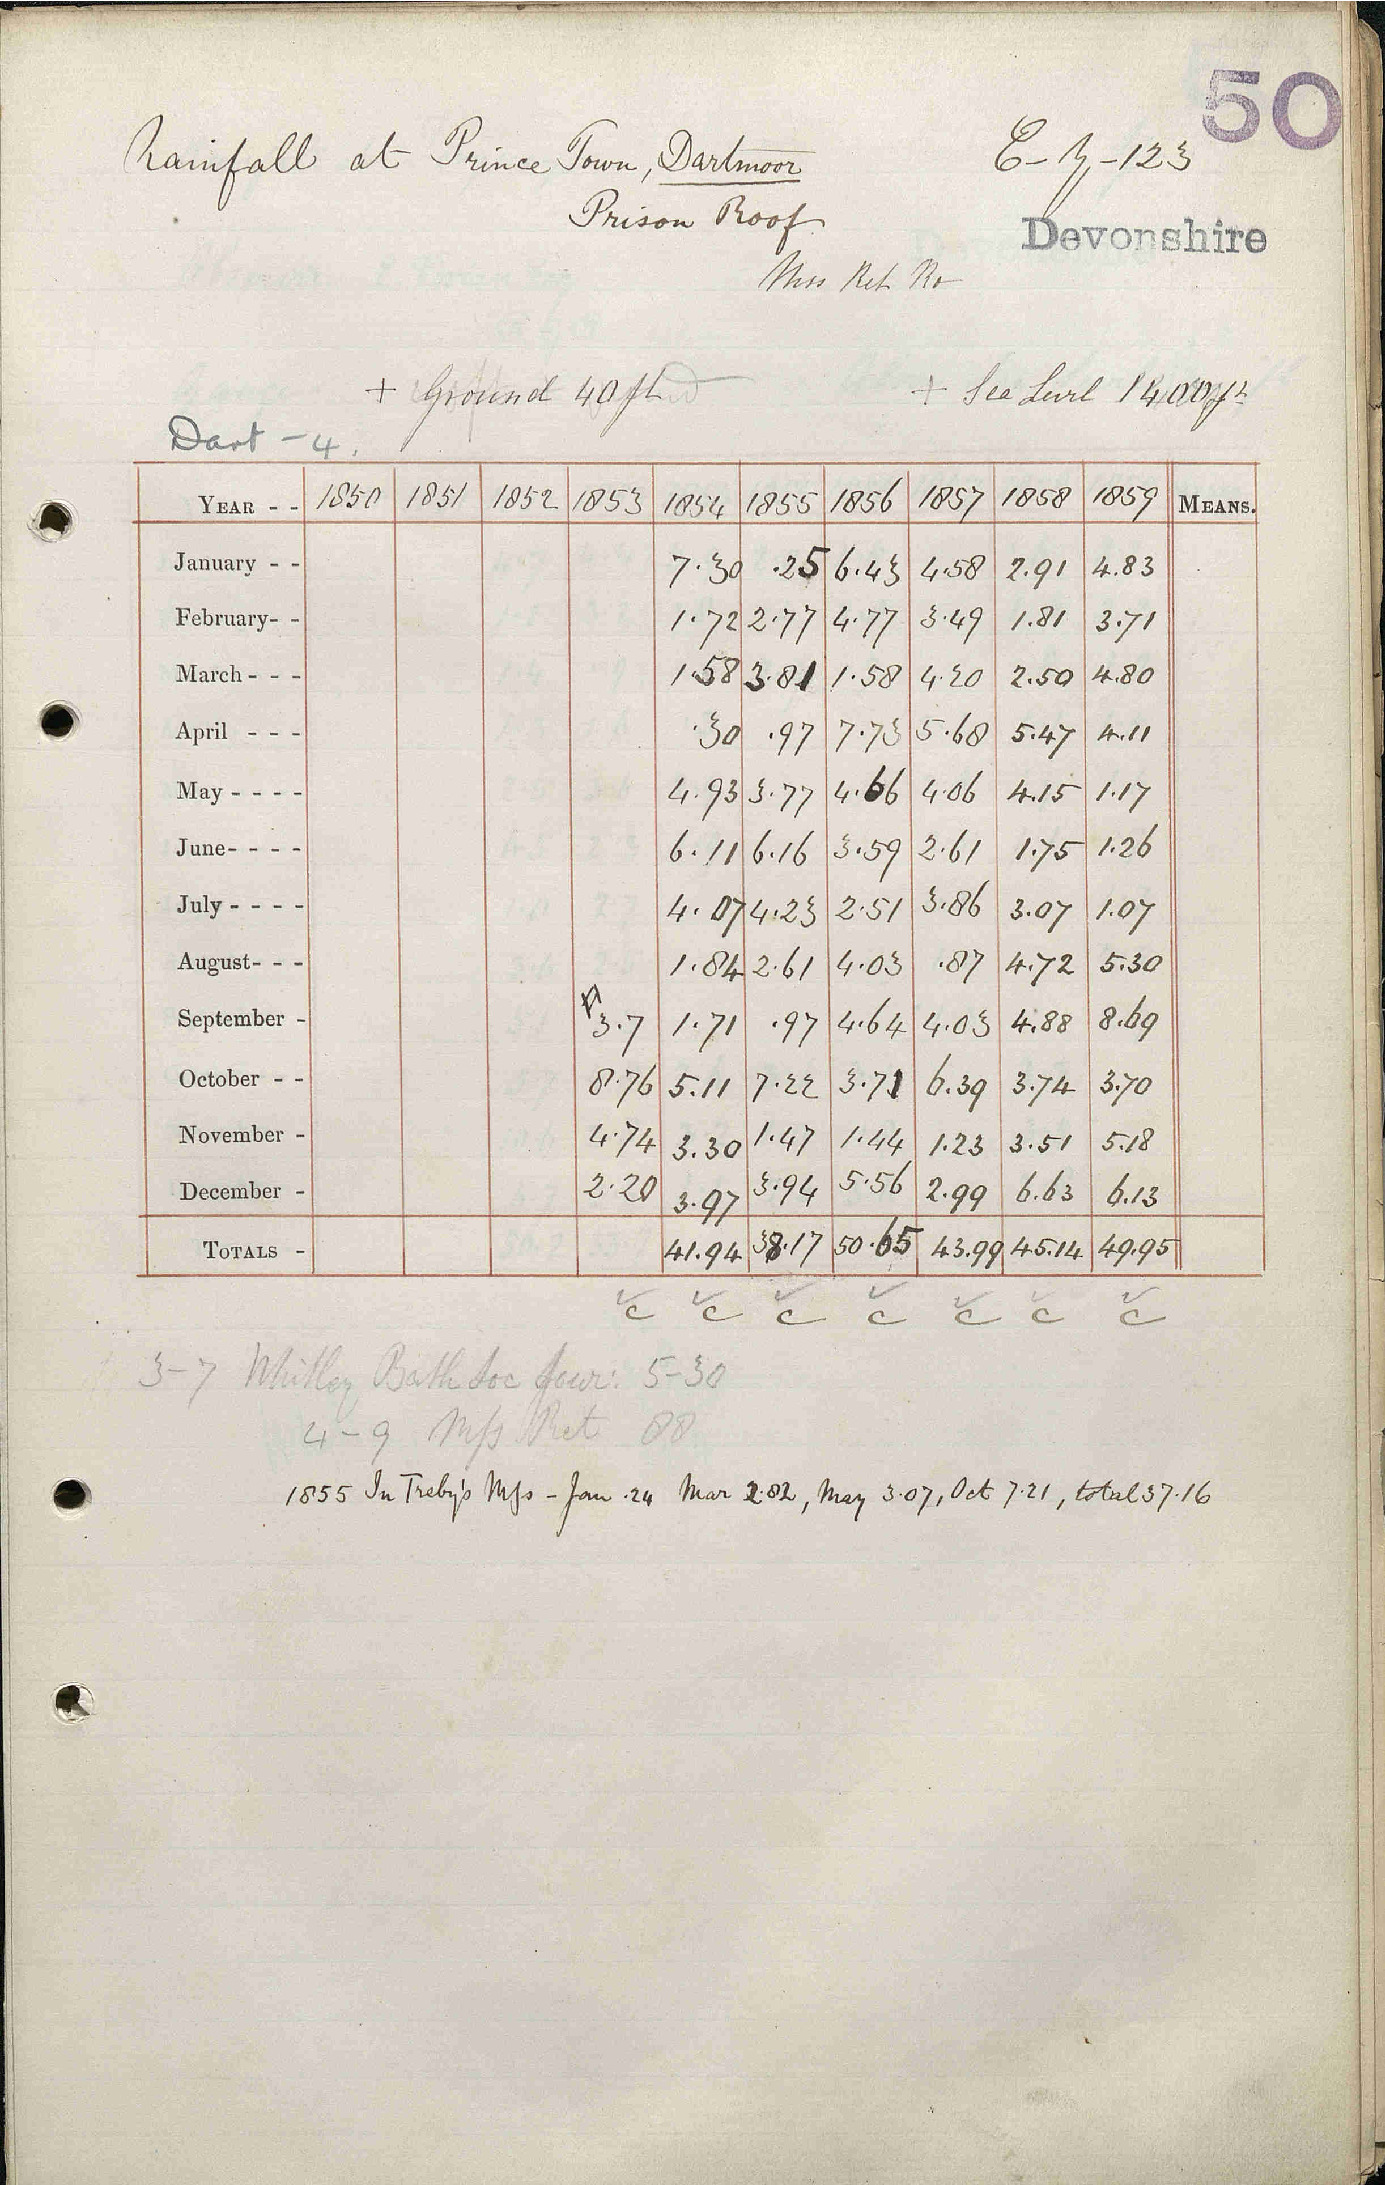 50
Rainfall at Prince Town, Dartmoor
Prison Roof
E-y-123
Devonshire
Mss Ret Ro
+ Ground 40 ft
+ Sea Level 1400 ft
Dart - 4.
YEAR - - 1850 1851 1852 1853 1854 1855 1856 1857 1858 1859 MEANS.
January - - 7.30 .25 6.43 4.58 2.91 4.83
February- - 1.72 2.77 4.77 3.49 1.81 3.71
March - - - 1.58 3.81 1.58 4.20 2.50 4.80
April - - - .30 .97 7.73 5.68 5.47 4.11
May - - - - 4.93 3.77 4.66 4.06 4.15 1.17
June- - - - 6.11 6.16 3.59 2.61 1.75 1.26
July - - - - 4.07 4.23 2.51 3.86 3.07 1.07
August- - - 1.84 2.61 4.03 .87 4.72 5.30
September - 3.7 1.71 .97 4.64 4.03 4.88 8.69
October - - 8.76 5.11 7.22 3.71 6.39 3.74 3.70
November - 4.74 3.30 1.47 1.44 1.23 3.51 5.18
December - 2.20 3.97 3.94 5.56 2.99 6.63 6.13
TOTALS - 41.94 38.17 50.65 43.99 45.14 49.95
c c c c c c c
3-7 Whitley Bath Soc Jour: 5-30
4-9 Mss Ret 88
1855 In Treby's Mss - Jan .24 Mar 2.82, May 3.07, Oct 7.21, total 37.16